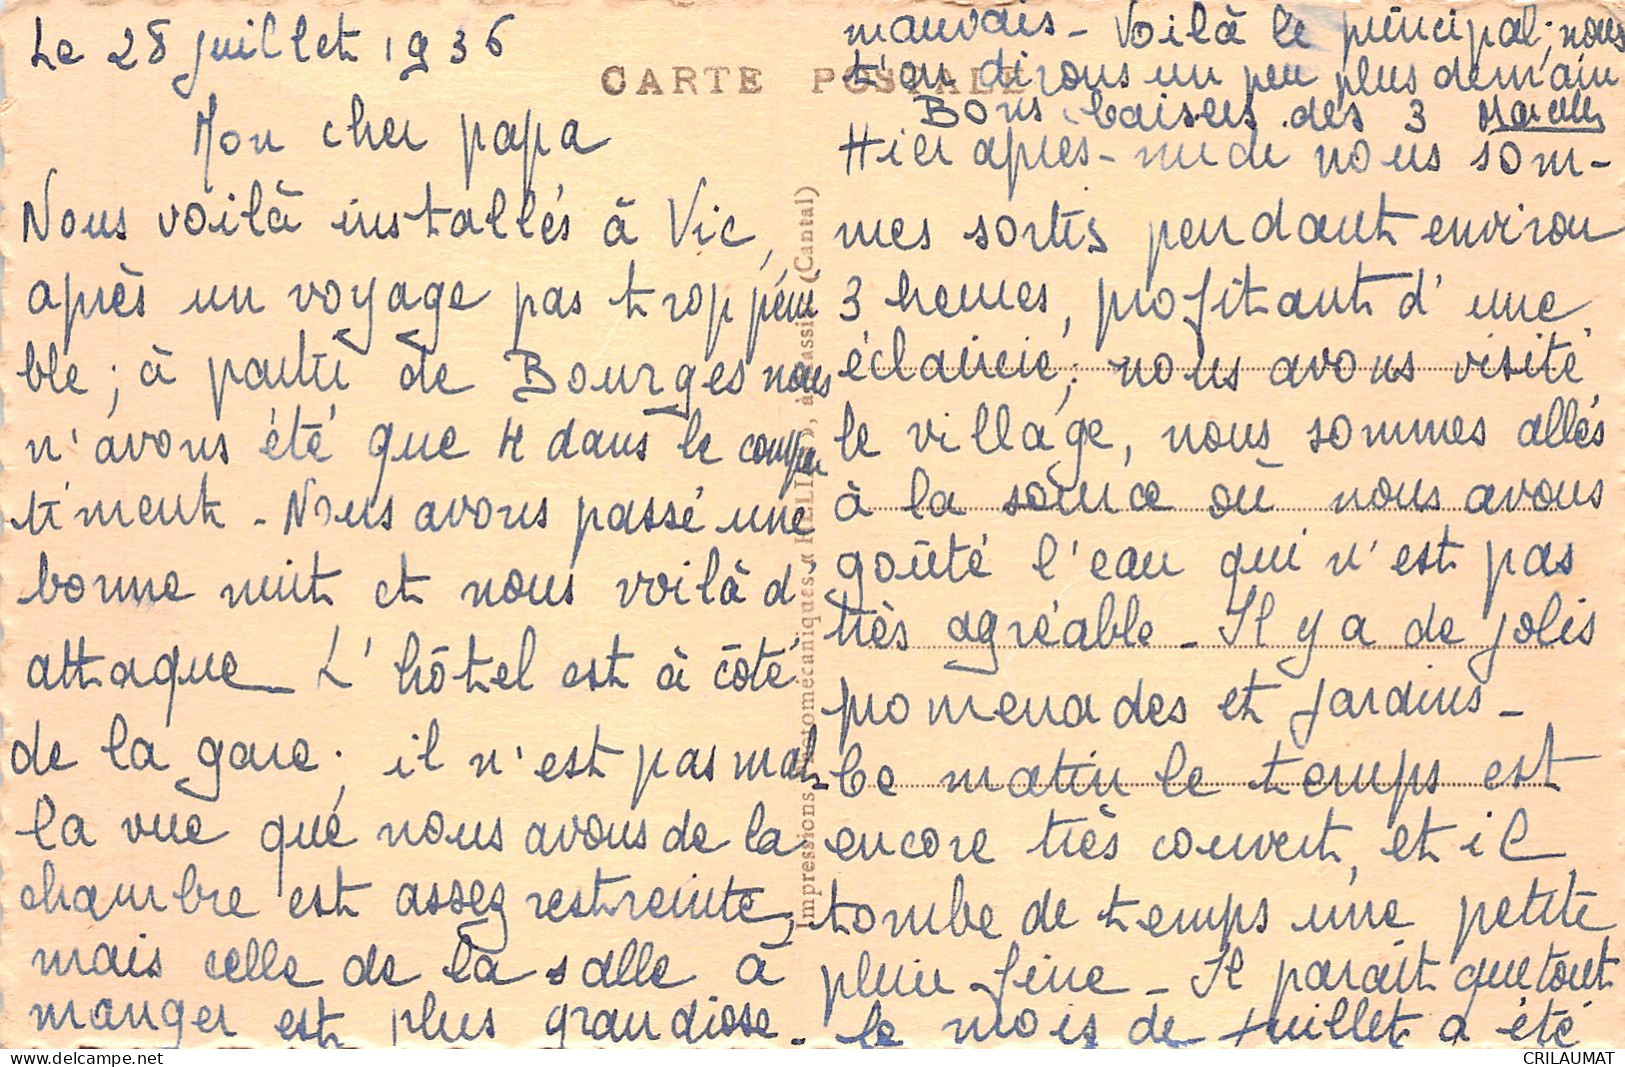 Le 28 juillet 1936
CARTE POSTALE
Mon cher papa
Nous voilà installés à Vic,
après un voyage pas trop péni
ble ; à partir de Bourges nous
n'avons été que 4 dans le compar
timent - Nous avons passé une
bonne nuit et nous voilà d'
attaque - L'hôtel est à côté
de la gare ; il n'est pas mal -
la vue que nous avons de la
chambre est assez restreinte,
mais celle de la salle à
manger est plus grandiose -
Hier après-midi nous som-
mes sortis pendant environ
3 heures, profitant d'une
éclaircie ; nous avons visité
le village, nous sommes allés
à la source où nous avons
goûté l'eau qui n'est pas
très agréable - Il y a de jolis
promenades et jardins -
Ce matin le temps est
encore très couvert, et il
tombe de temps une petite
pluie fine - Il parait que tout
le mois de Juillet a été
mauvais - Voilà le principal ; nous
t'en dirons un peu plus demain
Bons baisers des 3
Impressions Photomécaniques « (Cantal)
CRILAUMAT